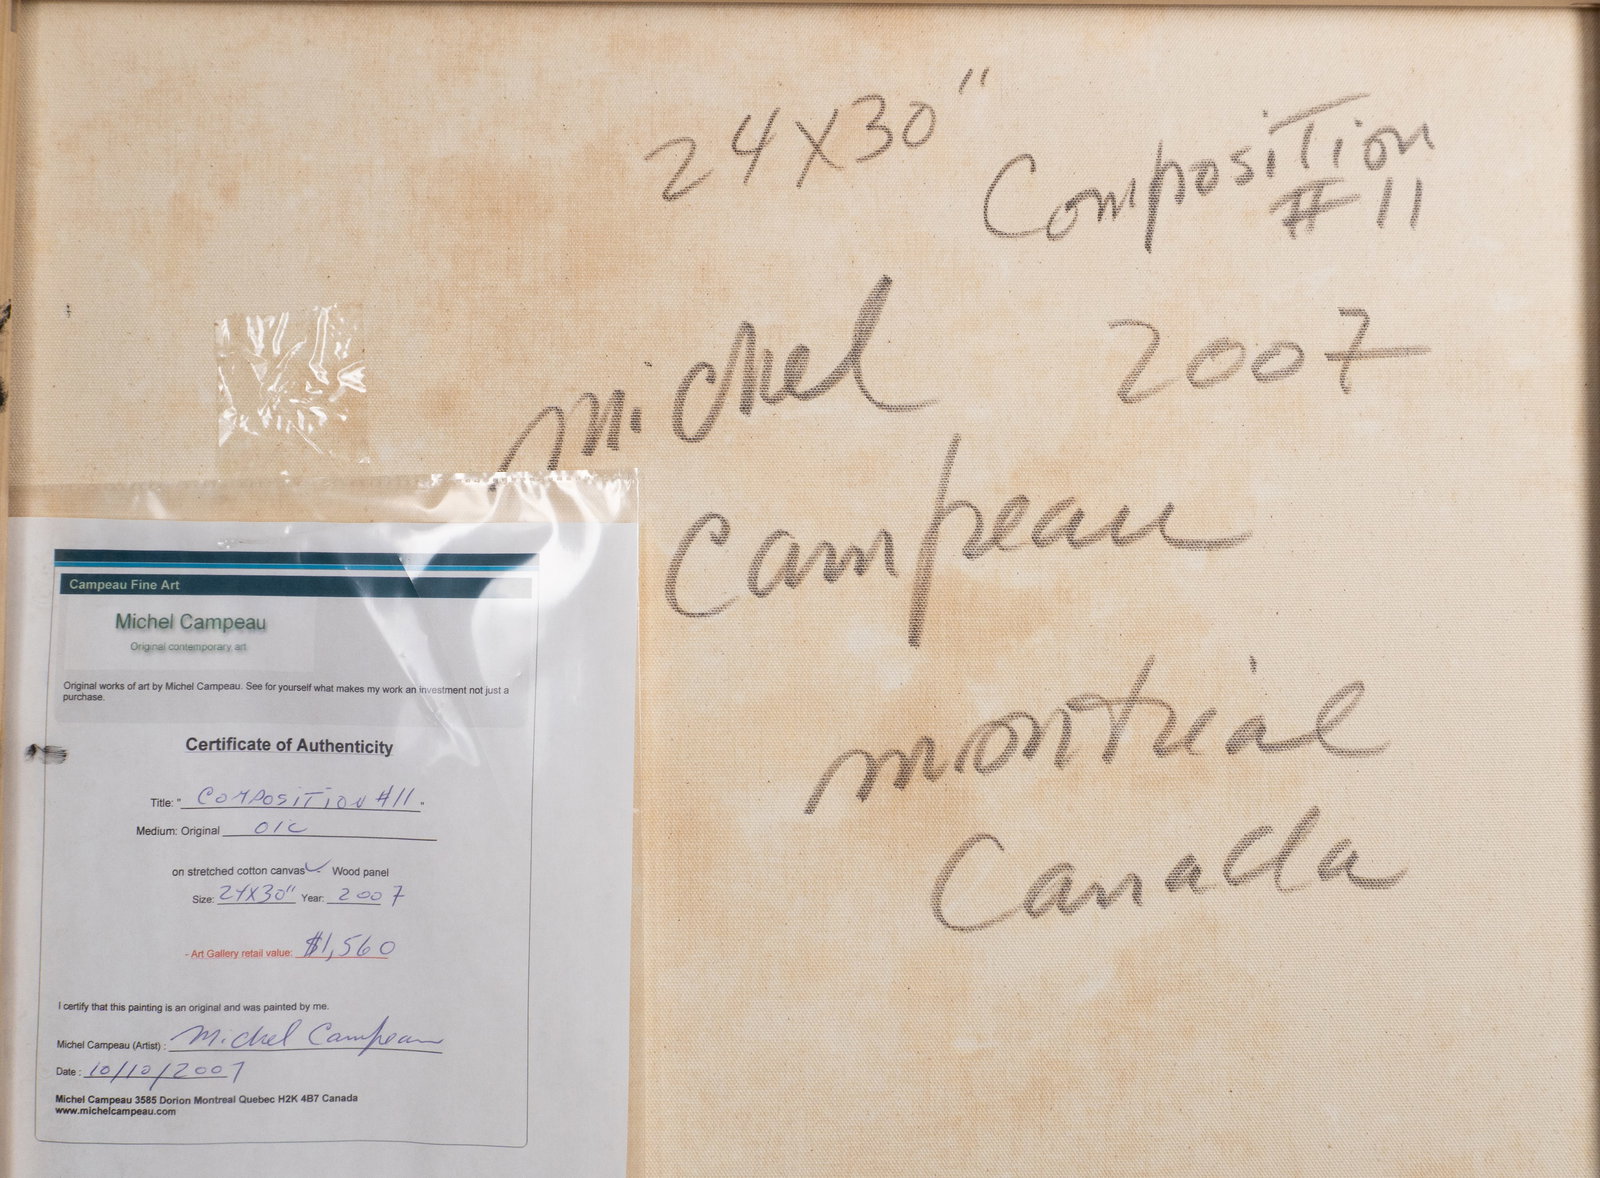 24X30"
Composition
#11
Michel
2007
Campeau
Montréal
Canada
Campeau Fine Art
Michel Campeau
Original contemporary art
Original works of art by Michel Campeau. See for yourself what makes my work an investment not just a
purchase.
Certificate of Authenticity
Title: " COMPOSITION #11 "
Medium: Original O/C
on stretched cotton canvas ✓ Wood panel
Size: 24X30" Year: 2007
- Art Gallery retail value: $1,560
I certify that this painting is an original and was painted by me.
Michel Campeau (Artist) : Michel Campeau
Date : 10/10/2007
Michel Campeau 3585 Dorion Montreal Quebec H2K 4B7 Canada
www.michelcampeau.com